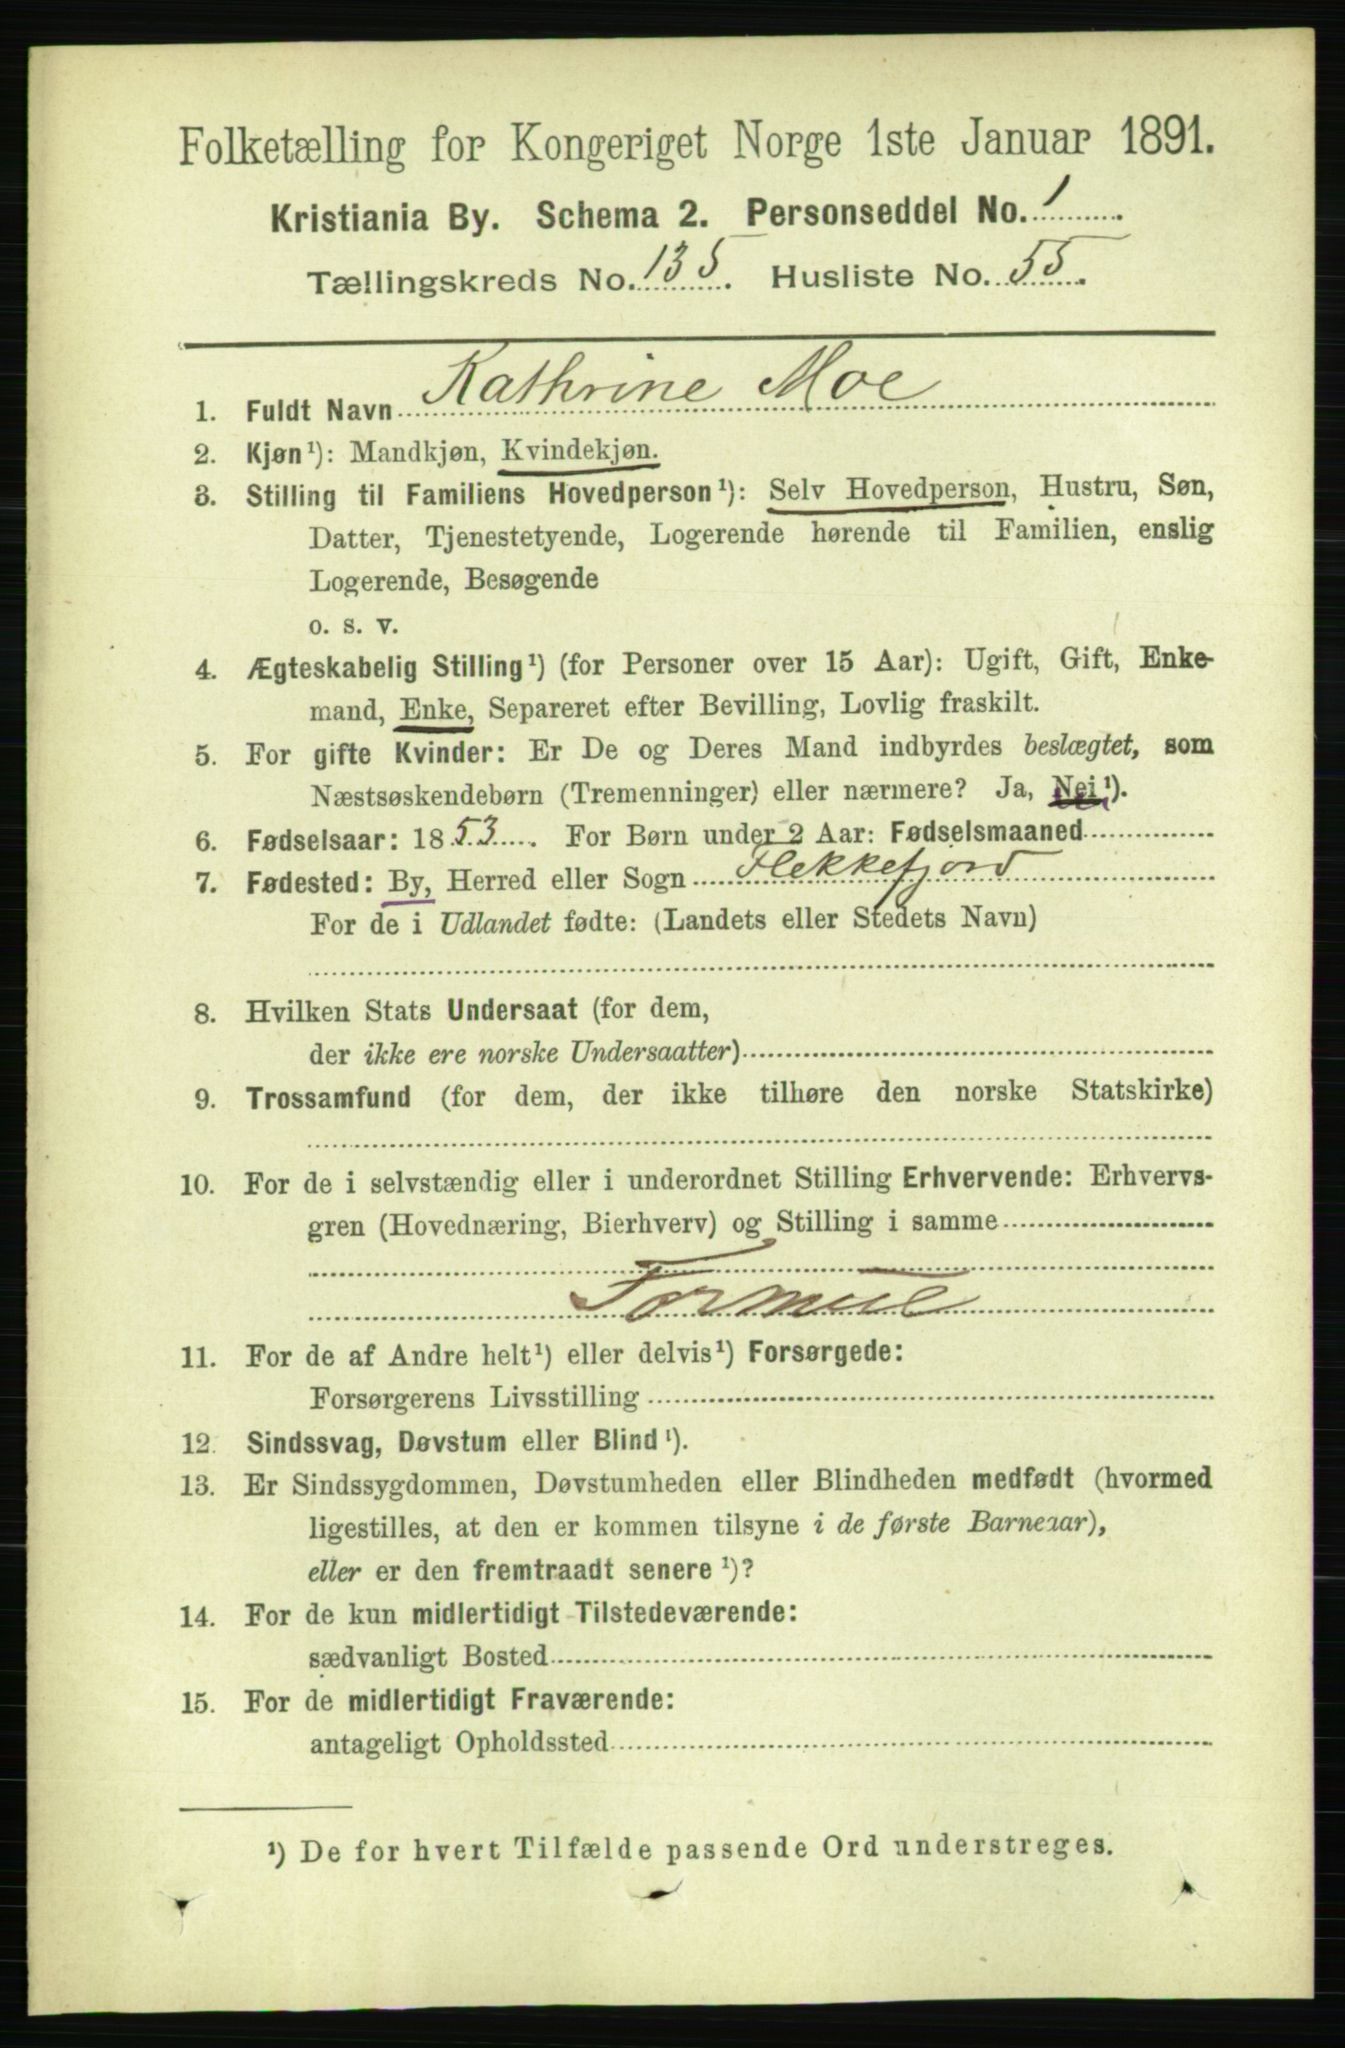 Folketælling for Kongeriget Norge 1ste Januar 1891.
Kristiania By. Schema 2. Personseddel No. 1
Tællingskreds No. 135. Husliste No. 55.
1. Fuldt Navn Kathrine Moe
2. Kjøn¹): Mandkjøn, Kvindekjøn.
3. Stilling til Familiens Hovedperson¹): Selv Hovedperson, Hustru, Søn,
Datter, Tjenestetyende, Logerende hørende til Familien, enslig
Logerende, Besøgende
o. s. v.
4. Ægteskabelig Stilling¹) (for Personer over 15 Aar): Ugift, Gift, Enke-
mand, Enke, Separeret efter Bevilling, Lovlig fraskilt.
5. For gifte Kvinder: Er De og Deres Mand indbyrdes beslægtet, som
Næstsøskendebørn (Tremenninger) eller nærmere? Ja, Nei¹).
6. Fødselsaar: 1853. For Børn under 2 Aar: Fødselsmaaned
7. Fødested: By, Herred eller Sogn Flekkefjord
For de i Udlandet fødte: (Landets eller Stedets Navn)
8. Hvilken Stats Undersaat (for dem,
der ikke ere norske Undersaatter)
9. Trossamfund (for dem, der ikke tilhøre den norske Statskirke)
10. For de i selvstændig eller i underordnet Stilling Erhvervende: Erhvervs-
gren (Hovednæring, Bierhverv) og Stilling i samme
Formue
11. For de af Andre helt¹) eller delvis¹) Forsørgede:
Forsørgerens Livsstilling
12. Sindssvag, Døvstum eller Blind¹).
13. Er Sindssygdommen, Døvstumheden eller Blindheden medfødt (hvormed
ligestilles, at den er kommen tilsyne i de første Barneaar),
eller er den fremtraadt senere¹)?
14. For de kun midlertidigt Tilstedeværende:
sædvanligt Bosted
15. For de midlertidigt Fraværende:
antageligt Opholdssted
¹) De for hvert Tilfælde passende Ord understreges.